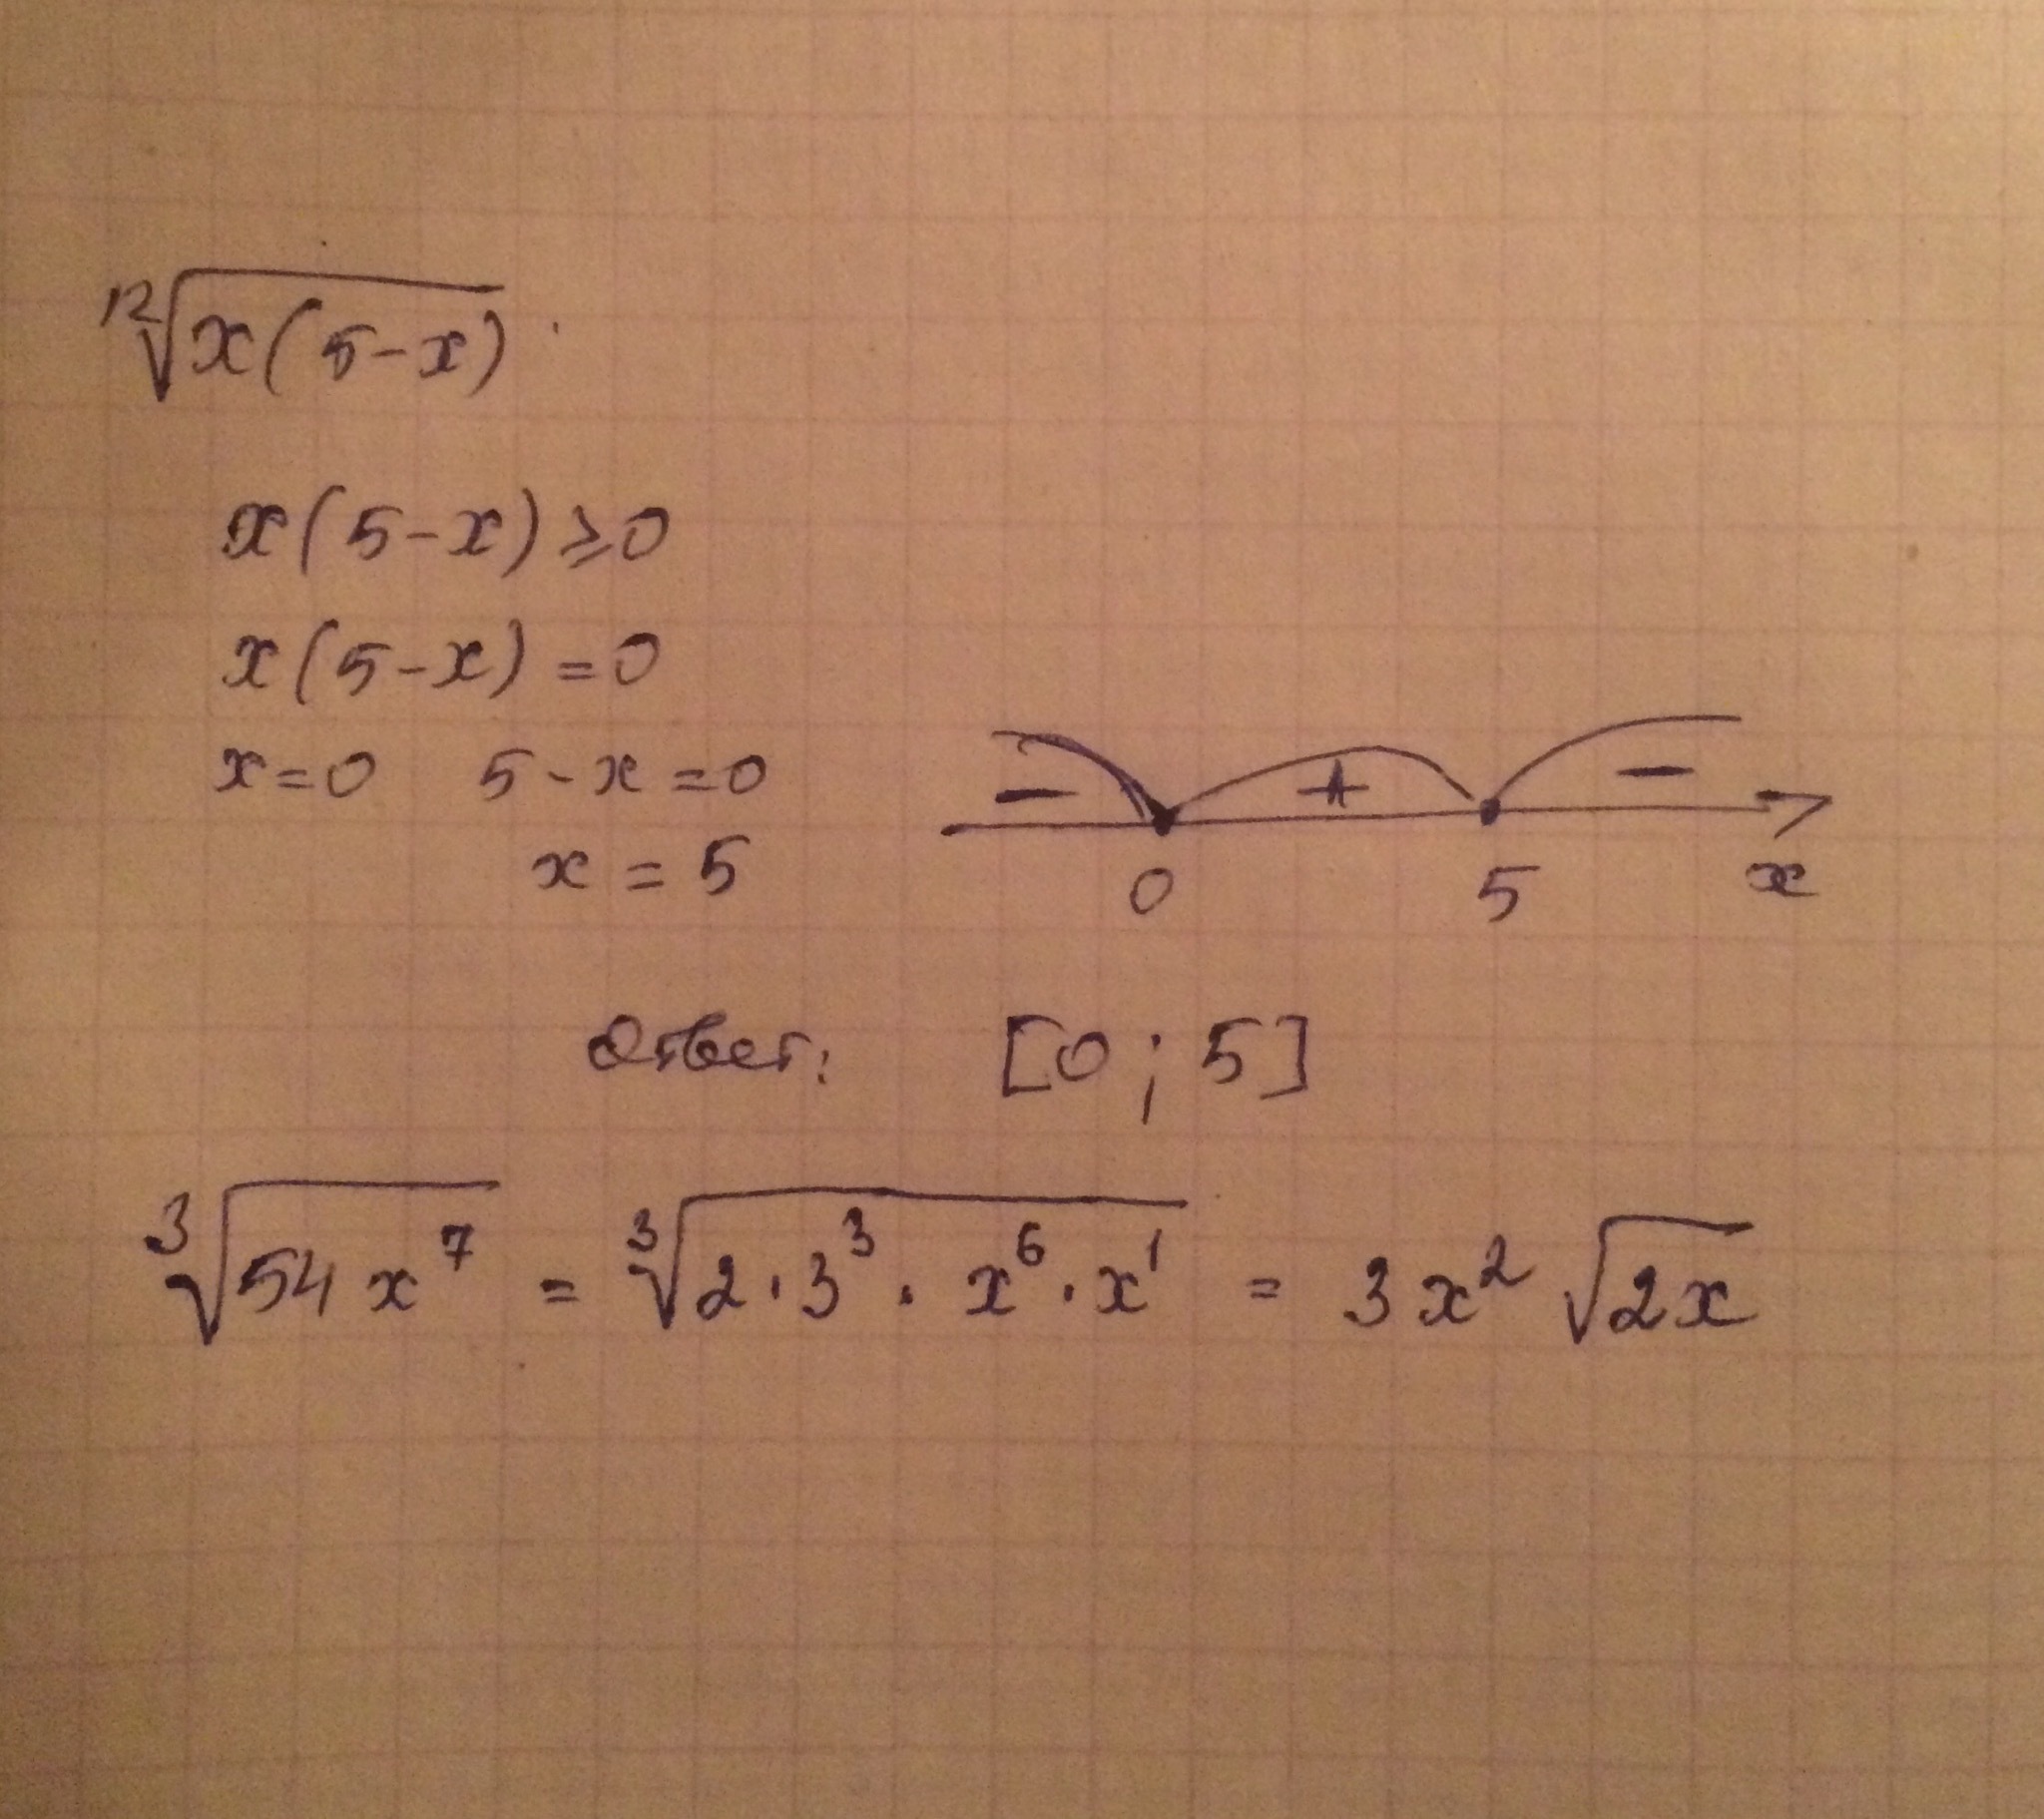 ¹²√x(5-x)
x(5-x)⩾0
x(5-x)=0
x=0 5-x=0
x=5
- + -
0 5 x
Ответ: [0;5]
³√54x⁷ = ³√2·3³·x⁶·x¹ = 3x²√2x